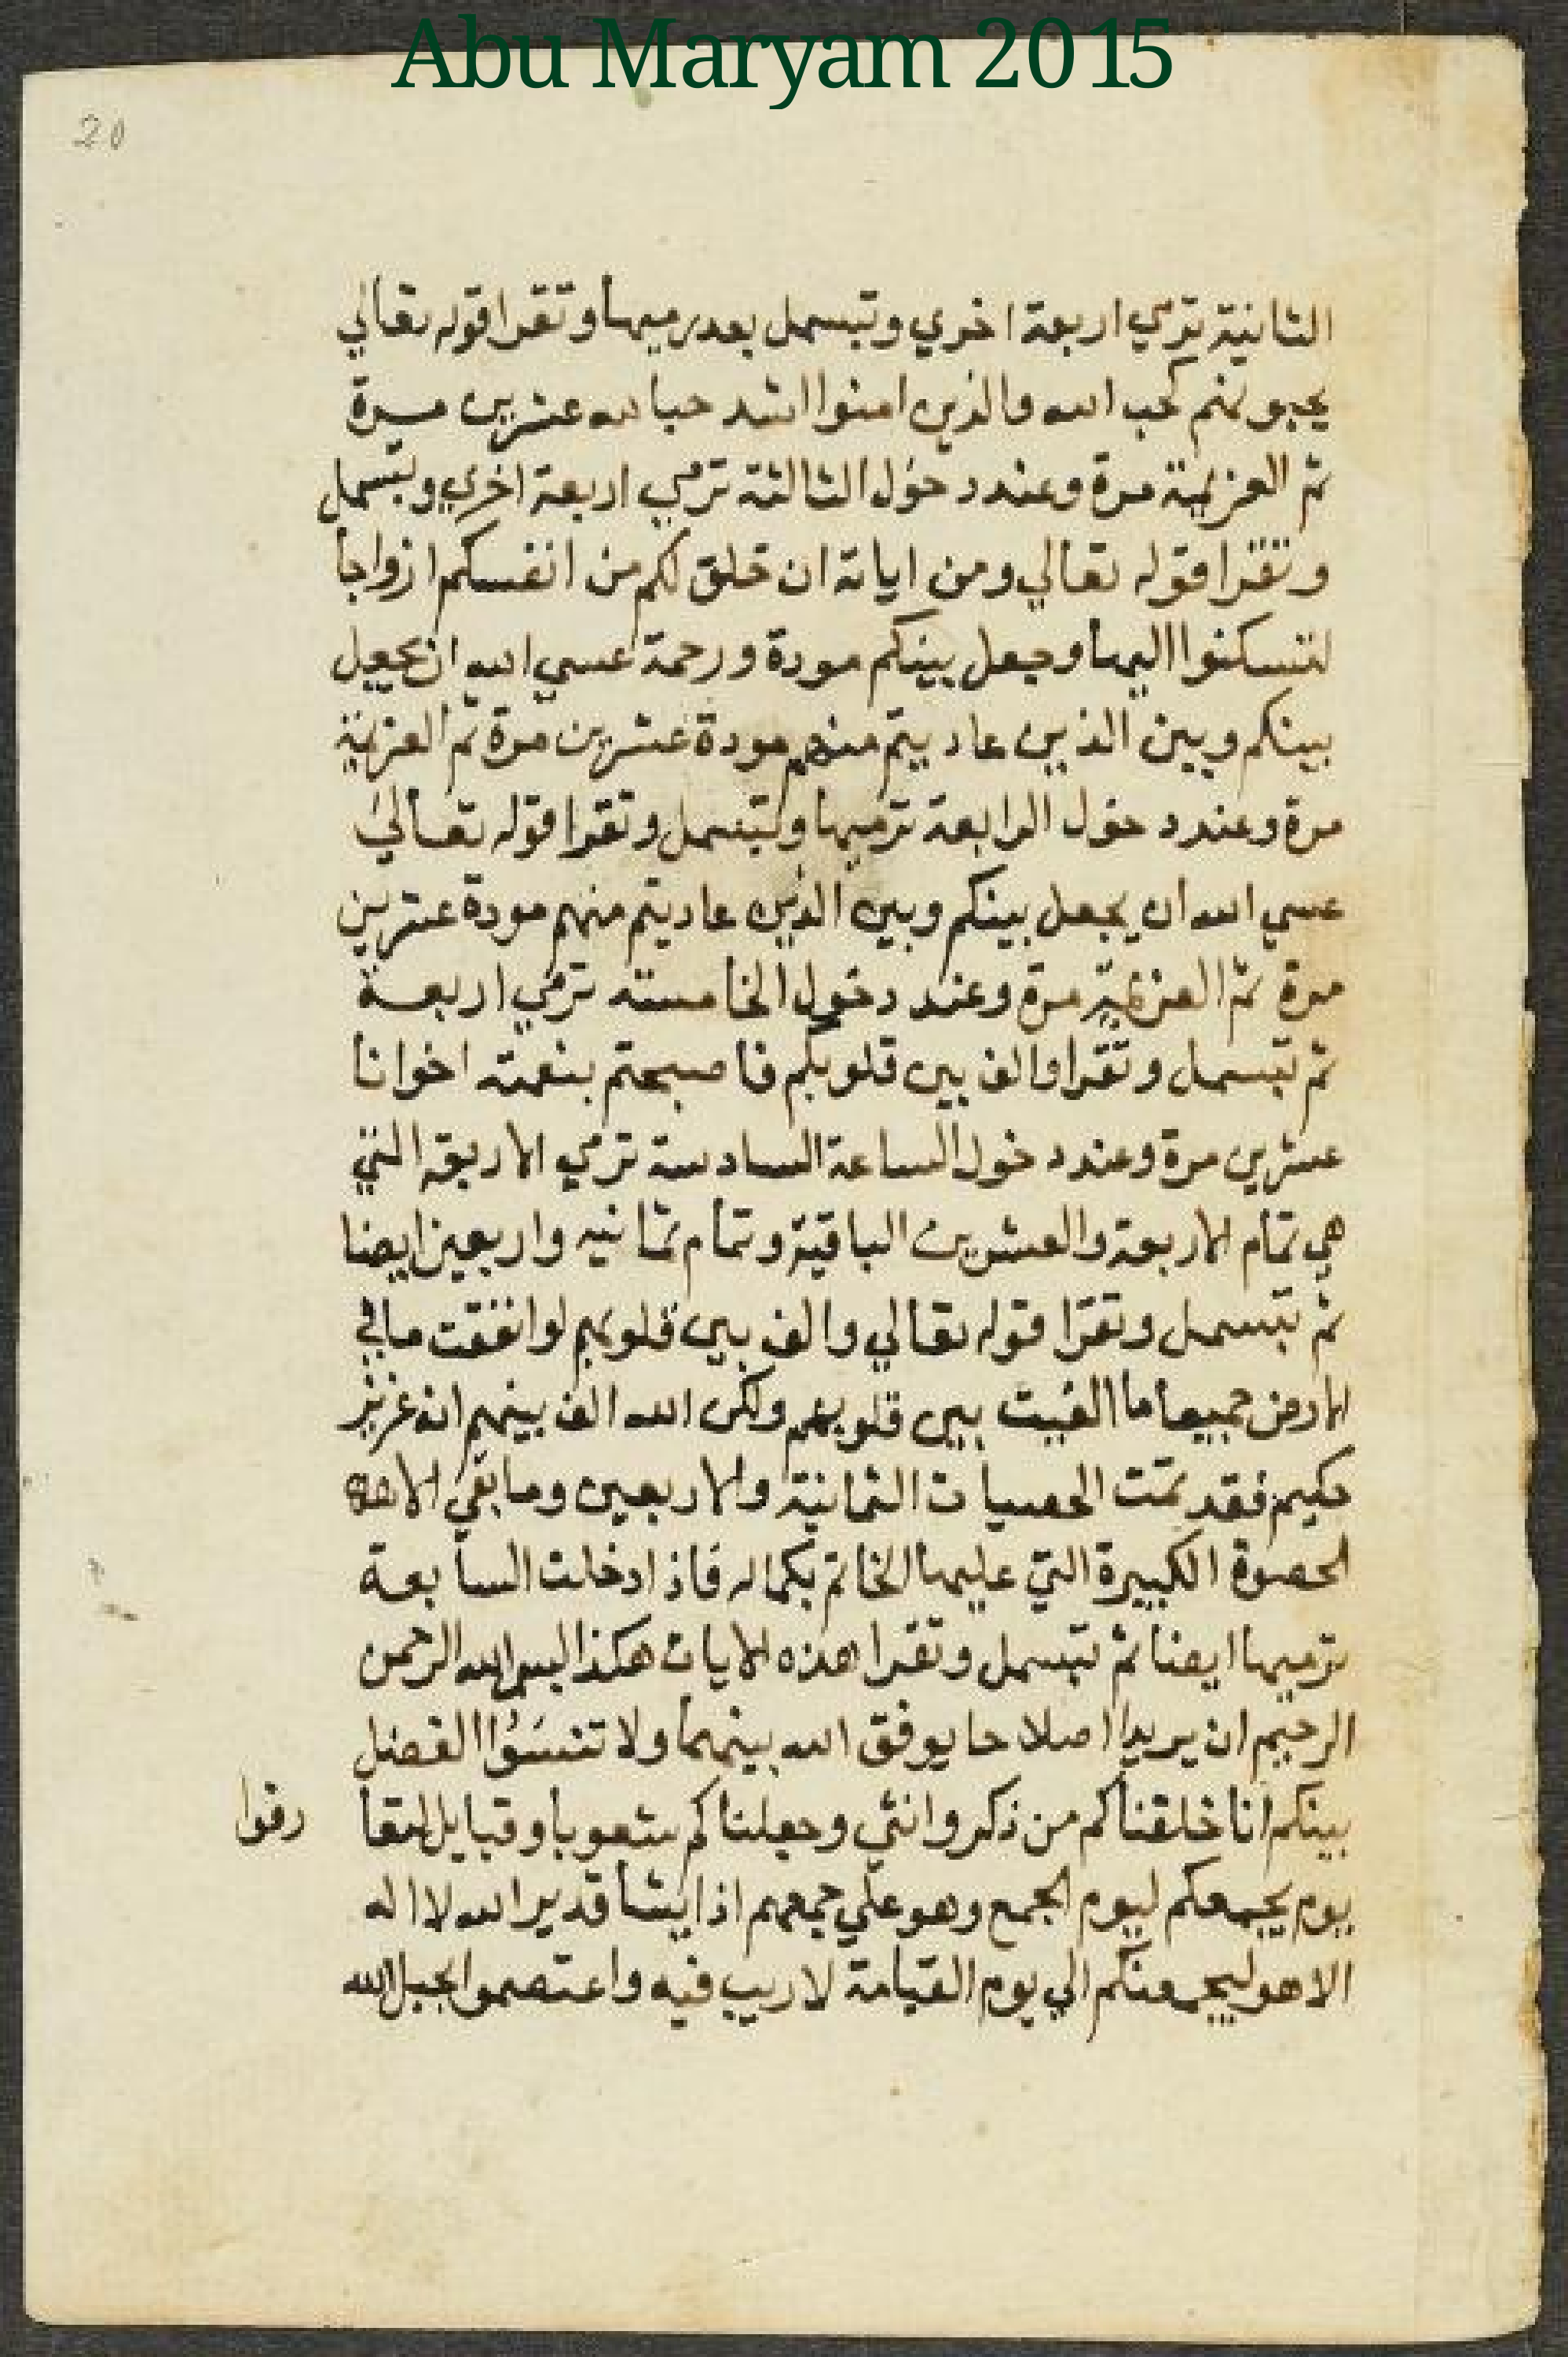 Abu Maryam 2015
20
الثانية ترمي اربعة اخري وتبسمل بعد رميها وتقرا قوله تعالي
يحبونهم كحب الله والذين امنوا اشد حبا لله عشرين مرة
ثم العزيمة مرة وعند دخول الثالثة ترمي اربعة اخري وتبسمل
وتقرا قوله تعالي ومن اياته ان خلق لكم من انفسكم ازواجا
لتسكنوا اليها وجعل بينكم مودة ورحمة عسي الله ان يجعل
بينكم وبين الذين عاديتم منهم مودة عشرين مرة ثم العزيمة
مرة وعند دخول الرابعة ترميها وتبسمل وتقرا قوله تعالي
عسي الله ان يجعل بينكم وبين الذين عاديتم منهم مودة عشرين
مرة ثم العزيمة مرة وعند دخول الخامسته ترمي اربعة
ثم تبسمل وتقرا والف بين قلوبكم فاصبحتم بنعمته اخوانا
عشرين مرة وعند دخول الساعة السادسة ترمي الاربعة التي
هي تمام الاربعة والعشرين الباقية وتمام ثمانيه واربعين ايضا
ثم تبسمل وتقرا قوله تعالي والف بين قلوبهم لو انفقت ما في
الارض جميعا ما الفيت بين قلوبهم ولكن الله الف بينهم انه عزيز
حكيم فقد تمت الحصيات الثمانية والاربعين وما بقي الا
الحصوة الكبيرة التي عليها الخاتم بكماله فاذا دخلت السابعة
ترميها ايضا ثم تبسمل وتقرا هذه الايات هكذا بسم الله الرحمن
الرحيم ان يريدا اصلاحا يوفق الله بينهما ولا تنسَوُا الفضل
بينكم انا خلقناكم من ذكر وانثي وجعلناكم شعوبا وقبايل لتعا رفوا
يوم يجمعكم ليوم الجمع وهو علي جمعهم اذا يشا قدير الله لا اله
الا هو ليجمعنكم الي يوم القيامة لا ريب فيه واعتصموا بحبل الله